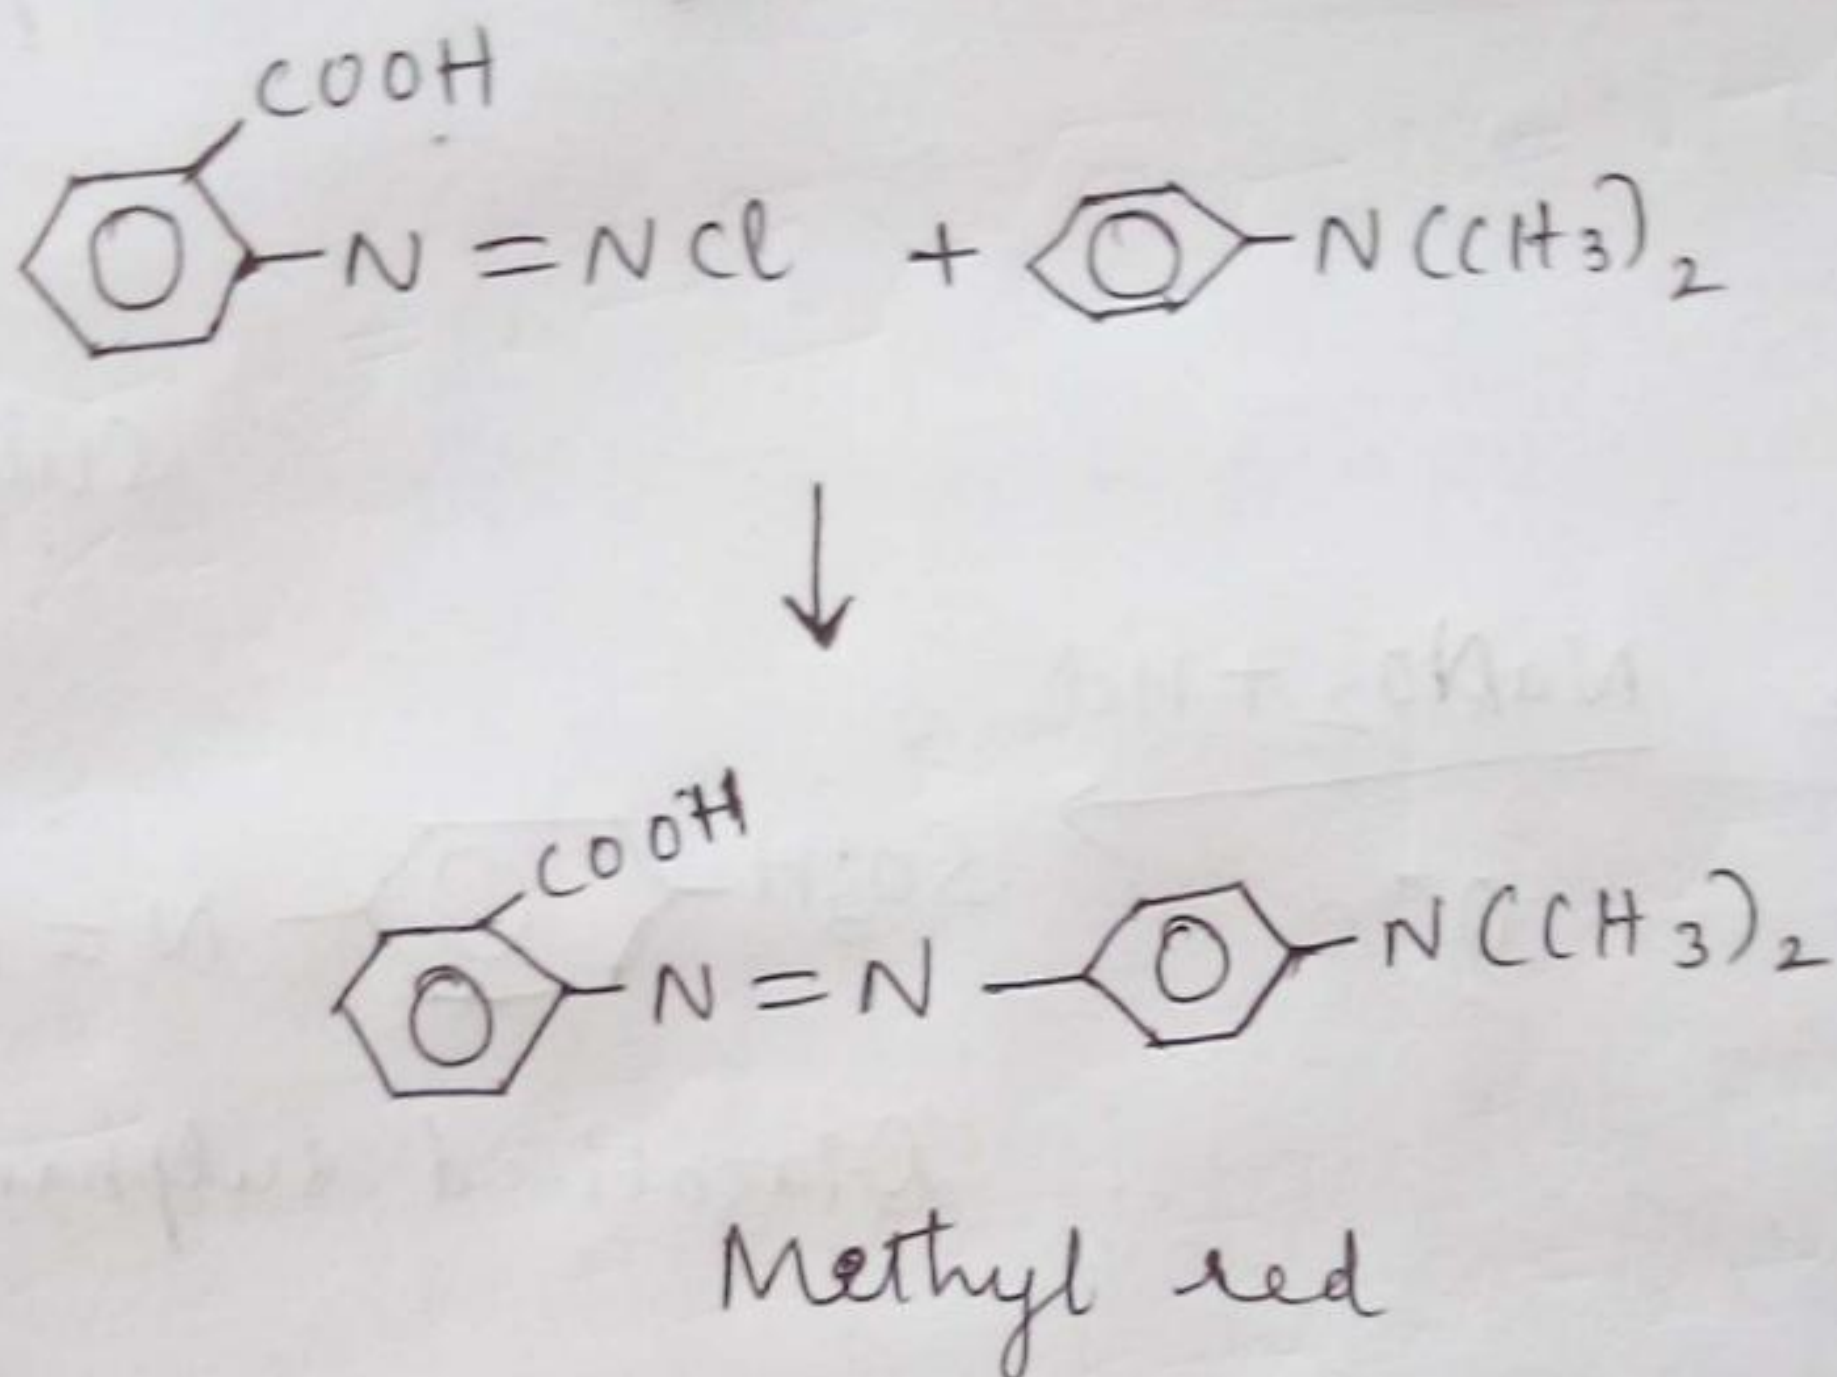 COOH
N=NCl + N(CH3)2
COOH
N=N N(CH3)2
Methyl red